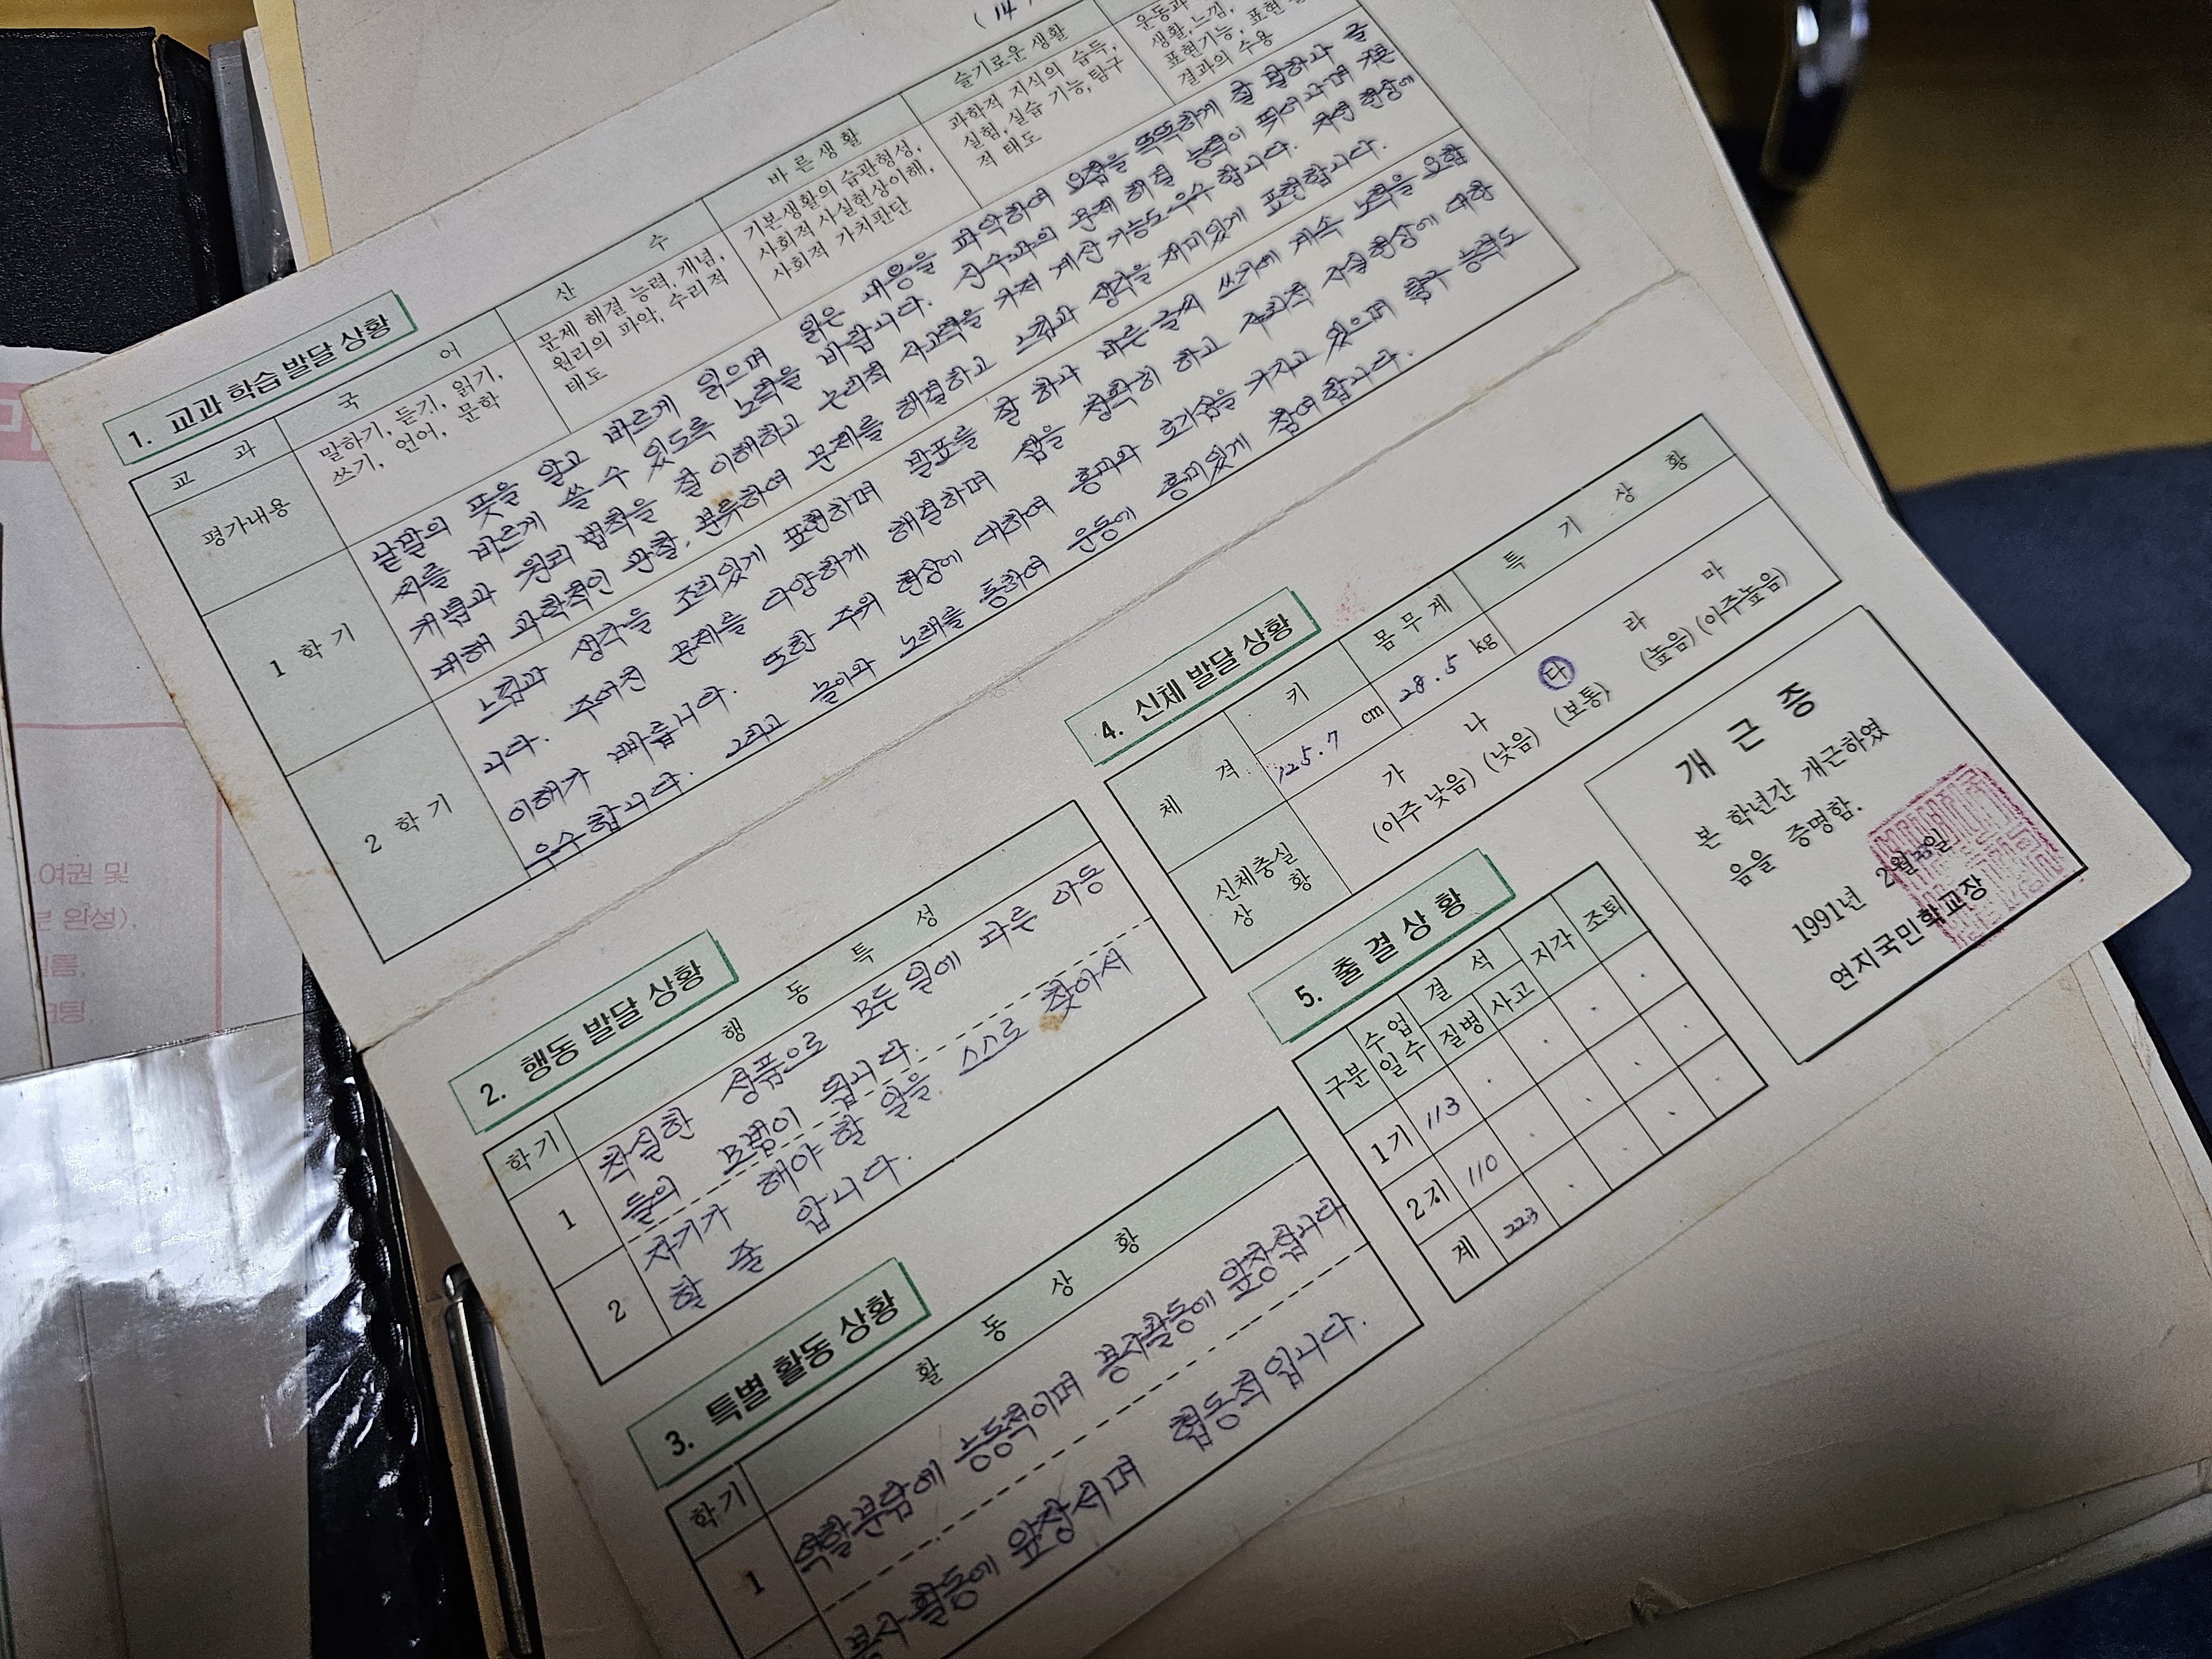 (14
1. 교과 학습 발달 상황
교 과
국 어
산 수
바 른 생 활
슬기로운 생활
평가내용
말하기, 듣기, 읽기,
쓰기, 언어, 문학
문제 해결 능력, 개념,
원리의 파악, 수리적
태도
기본생활의 습관형성,
사회적 사실현상이해,
사회적 가치판단
과학적 지식의 습득,
실험, 실습 기능, 탐구
적 태도
운동과
생활, 느낌,
표현기능, 표현
결과의 수용
1 학 기
낱말의 뜻을 알고 바르게 읽으며 읽은 내용을 파악하여 요점을 또똑하게 잘 말하나 글
씨를 바르게 쓸 수 있도록 노력을 바랍니다. 산수과의 문제 해결 능력이 뛰어나며
개념과 원리 법칙을 잘 이해하고 논리적 사고력을 가져 계산 기능도 우수합니다. 자연 현상에
대해 과학적인 관찰, 분류하여 문제를 해결하고 느낌과 생각을 재미있게 표현합니다.
2 학 기
느낌과 생각을 조리있게 표현하며 발표를 잘 하나 바른 글씨 쓰기에 계속 노력을 요합
니다. 주어진 문제를 다양하게 해결하며 셈을 정확히 하고 사회적 사실현상에 대한
이해가 빠릅니다. 또한 주위 현상에 대하여 흥미와 호기심을 가지고 있으며 탐구 능력도
우수합니다. 그리고 놀이와 노래를 통하여 운동에 흥미있게 참여합니다.
2. 행동 발달 상황
학 기
행 동 특 성
1
착실한 성품으로 모든 일에 다른 아동
들의 모범이 됩니다.
2
자기가 해야 할 일을 스스로 찾아서
할 줄 압니다.
3. 특별 활동 상황
학 기
활 동 상 황
1
역할분담에 능동적이며 봉사활동에 앞장섭니다
봉사 활동에 앞장서며 협동적입니다.
4. 신체 발달 상황
체 격
키
몸 무 게
특 기 상 황
125.7 cm
28.5 kg
신체충실
상 황
가 나 다 라 마
(아주 낮음) (낮음) (보통) (높음) (아주높음)
5. 출 결 상 황
구분
수업
일수
결 석
질병
사고
지각
조퇴
1기
113
2기
110
계
223
개 근 증
본 학년간 개근하였
음을 증명함.
1991년 2월 일
연지국민학교장
여권 및
로 완성),
필름,
코팅,